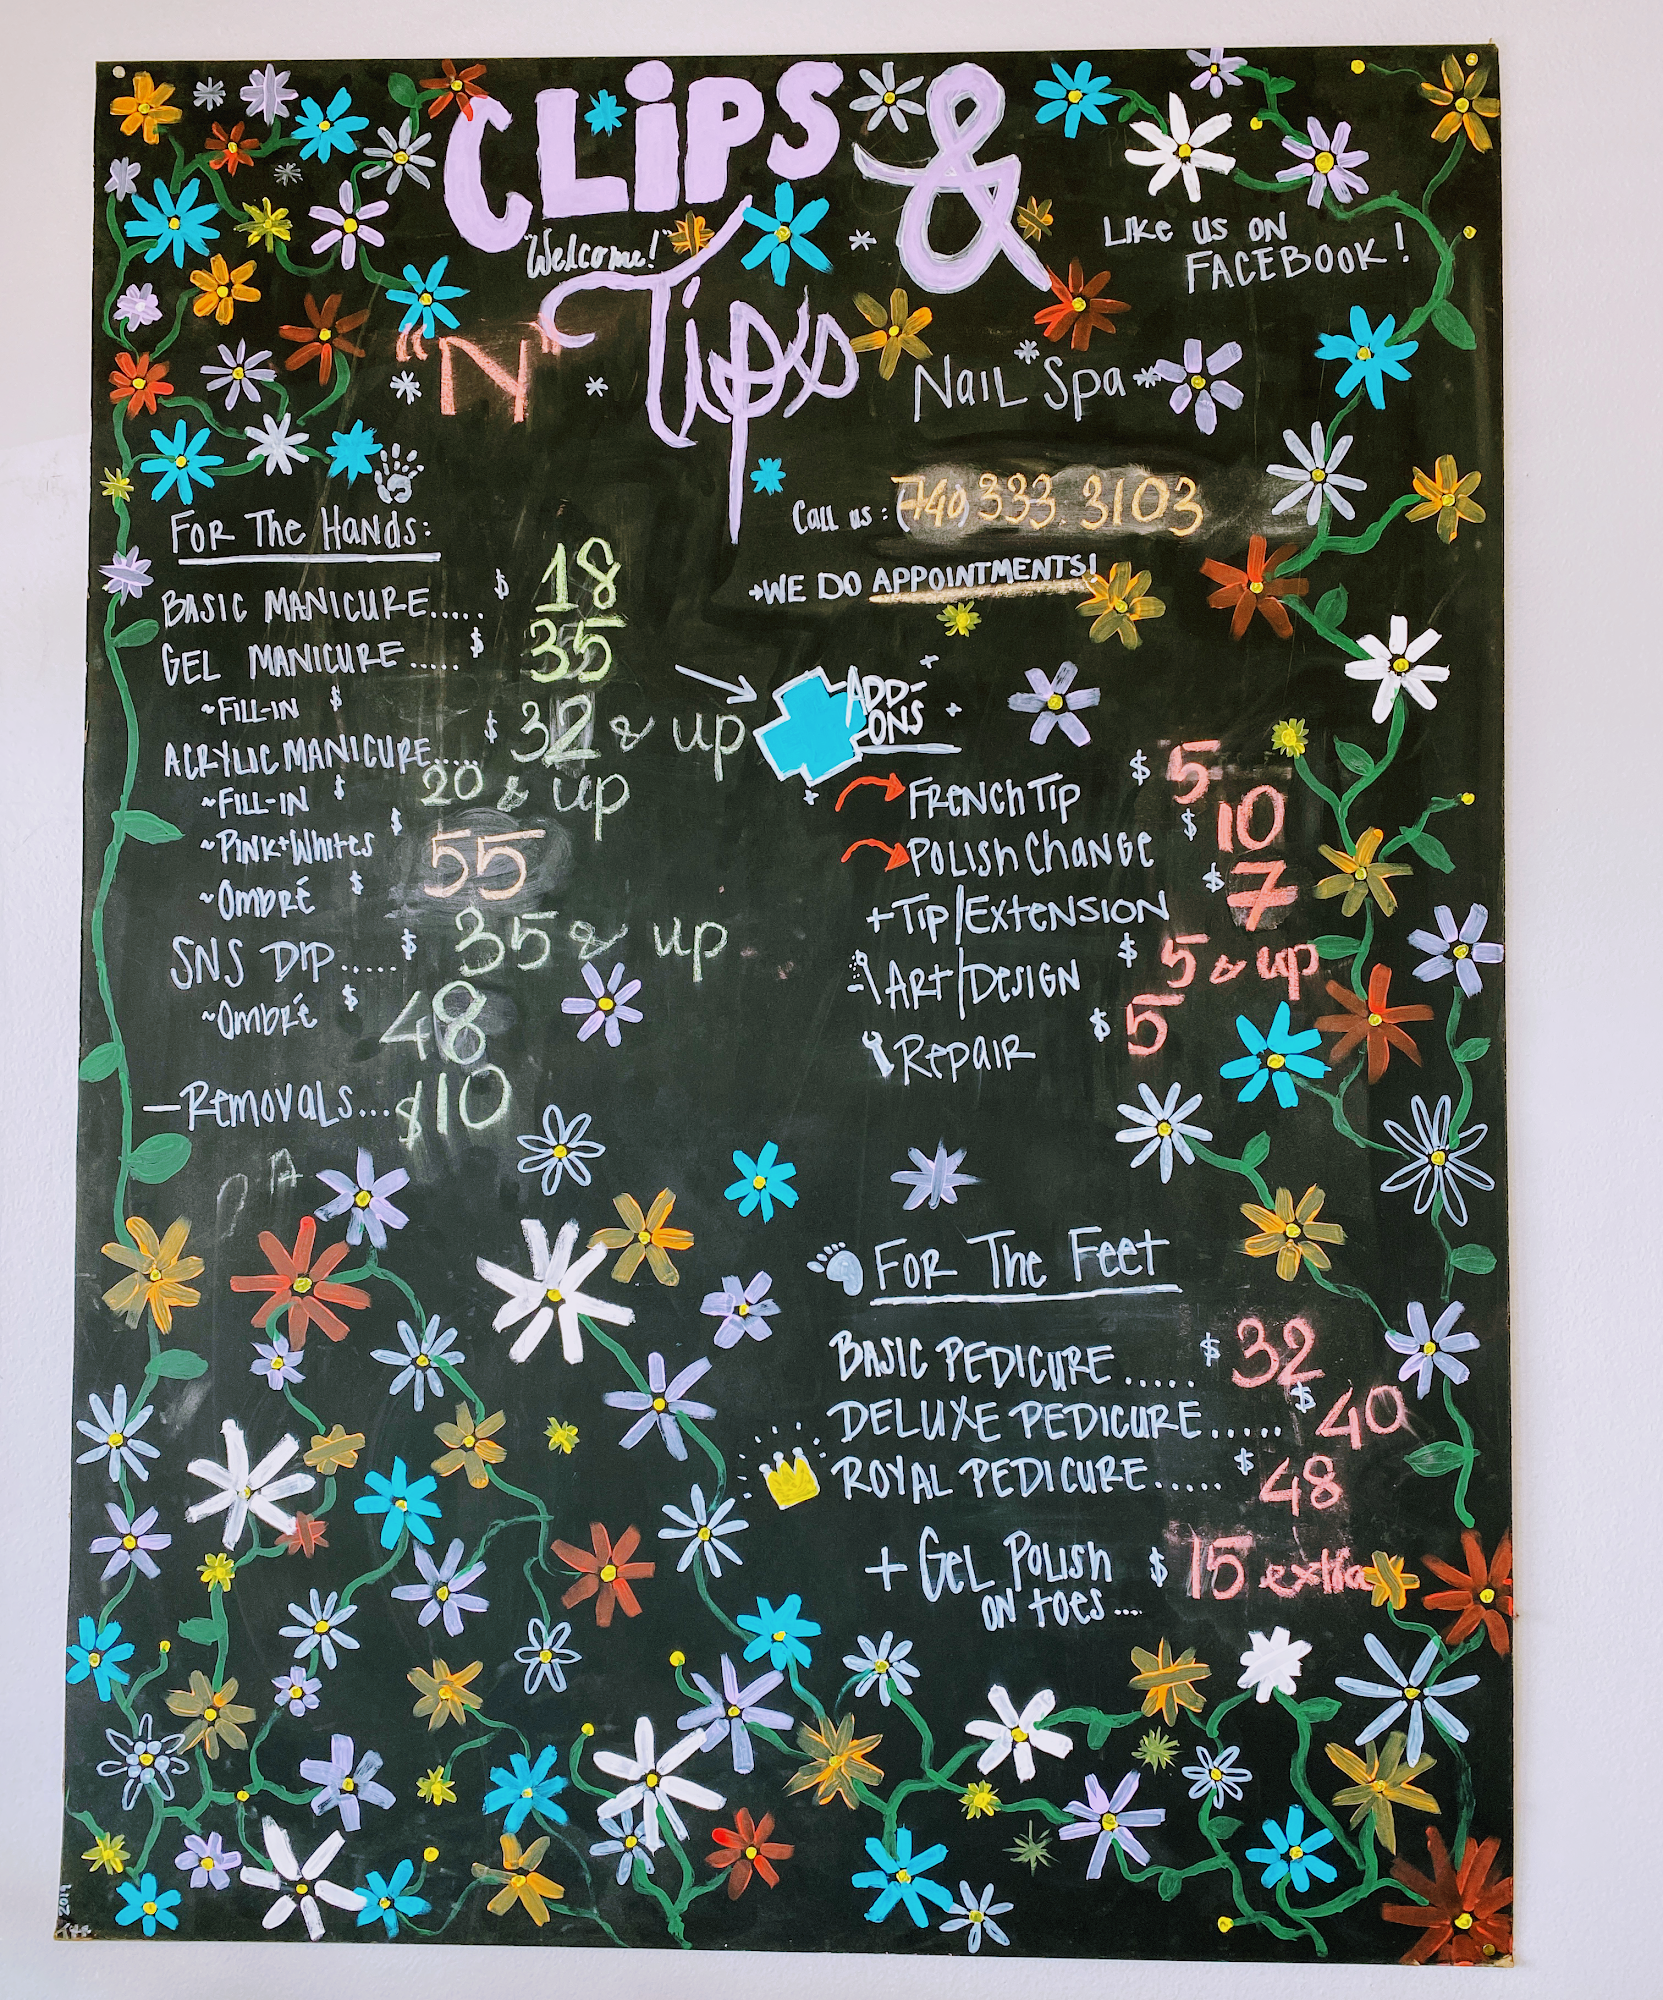 CLiPS &
"Welcome!"
Tips
"N"
Nail Spa
LIKE US ON
FACEBOOK!
Call us: (740) 333.3103
WE DO APPOINTMENTS!
FOR THE HANDS:
BASIC MANICURE..... $ 18
GEL MANICURE..... $ 35
~FILL-IN $
ACRYLIC MANICURE..... $ 32 & up
~FILL-IN $ 20 & up
~PINK+WHITES $ 55
~OMBRÉ $
SNS DIP..... $ 35 & up
~OMBRÉ $ 48
—REMOVALS... $10
ADD-
ONS
FRENCH TIP $ 5
POLISH CHANGE $ 10
+TIP/EXTENSION $ 7
ART/DESIGN $ 5 & up
REPAIR $ 5
FOR THE FEET
BASIC PEDICURE..... $ 32
DELUXE PEDICURE..... $ 40
ROYAL PEDICURE..... $ 48
+ GEL POLISH $ 15 extra
ON TOES...
2019